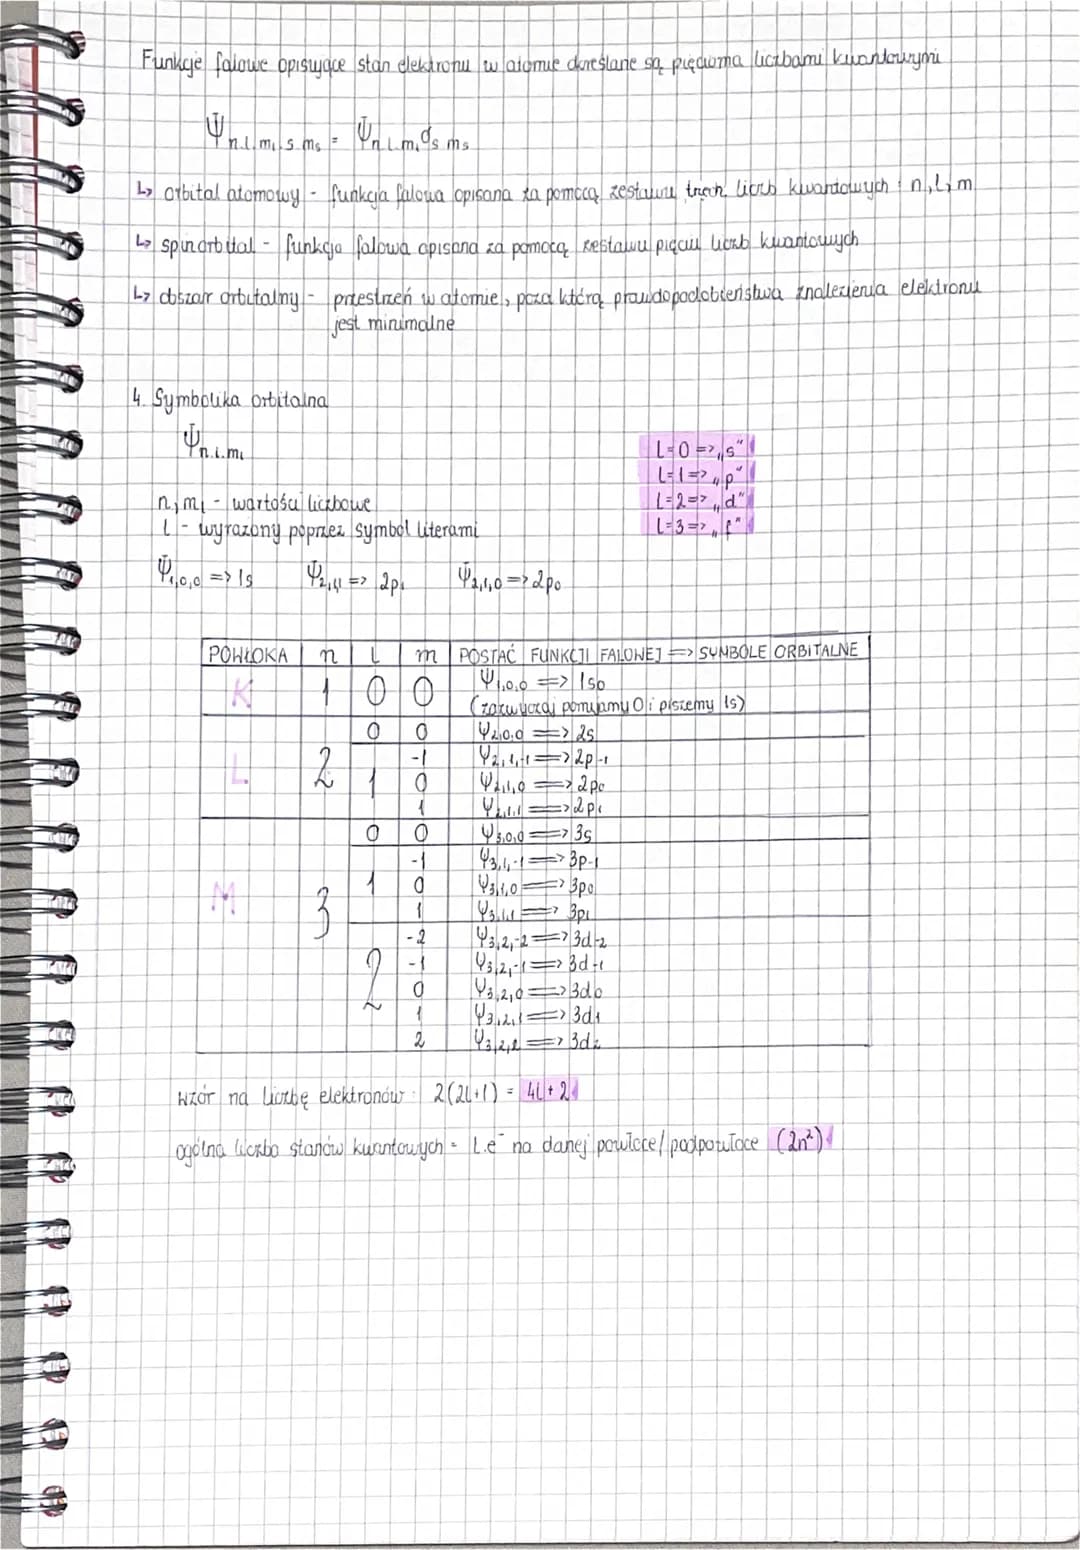 Funkcje falowe opisujące stan elektronu w atomie określane są pięcioma liczbami kwantowymi
Ψn.l.ml.s.ms = Ψn.l.ml σs ms
↳ orbital atomowy - funkcja falowa opisana za pomocą zestawu trzech liczb kwantowych: n, l i m
↳ spinorbital - funkcja falowa opisana za pomocą zestawu pięciu liczb kwantowych
↳ obszar orbitalny - przestrzeń w atomie, poza którą prawdopodobieństwa znalezienia elektronu
jest minimalne
4. Symbolika orbitalna
Ψn.l.ml
l=0 => „s"
l=1 => „p"
l=2 => „d"
l=3 => „f"
n, ml - wartości liczbowe
l - wyrażony poprzez symbol literami
Ψ1,0,0 => 1s Ψ2,1,1 => 2p1 Ψ2,1,0 => 2p0
POWŁOKA n l m POSTAĆ FUNKCJI FALOWEJ => SYMBOLE ORBITALNE
K 1 0 0 Ψ1,0,0 => 1s0
(zazwyczaj pomijamy 0 i piszemy 1s)
0 0 Ψ2,0,0 => 2s
L 2 1 -1 Ψ2,1,-1 => 2p-1
0 Ψ2,1,0 => 2p0
1 Ψ2,1,1 => 2p1
0 0 Ψ3,0,0 => 3s
-1 Ψ3,1,-1 => 3p-1
M 3 1 0 Ψ3,1,0 => 3p0
1 Ψ3,1,1 => 3p1
-2 Ψ3,2,-2 => 3d-2
2 -1 Ψ3,2,-1 => 3d-1
0 Ψ3,2,0 => 3d0
1 Ψ3,2,1 => 3d1
2 Ψ3,2,2 => 3d2
wzór na liczbę elektronów: 2(2l+1) = 4l+2
ogólna liczba stanów kwantowych = l.e⁻ na danej powłoce/podpowłoce (2n²)